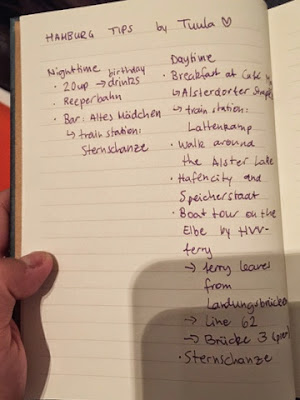 HAMBURG TIPS by Tuula ♡
Nighttime
· 20up → birthday drinks
· Reeperbahn
· Bar: Altes Mädchen
↳ train station:
Sternschanze
Daytime
· Breakfast at Café
↳ Alsterdorfer
↳ train station:
Lattenkamp
· Walk around
the Alster Lake
· Hafencity and
Speicherstadt
· Boat tour on the
Elbe by HVV-
ferry
→ ferry leaves
from
Landungsbrücken
→ Line 62
→ Brücke 3
· Sternschanze